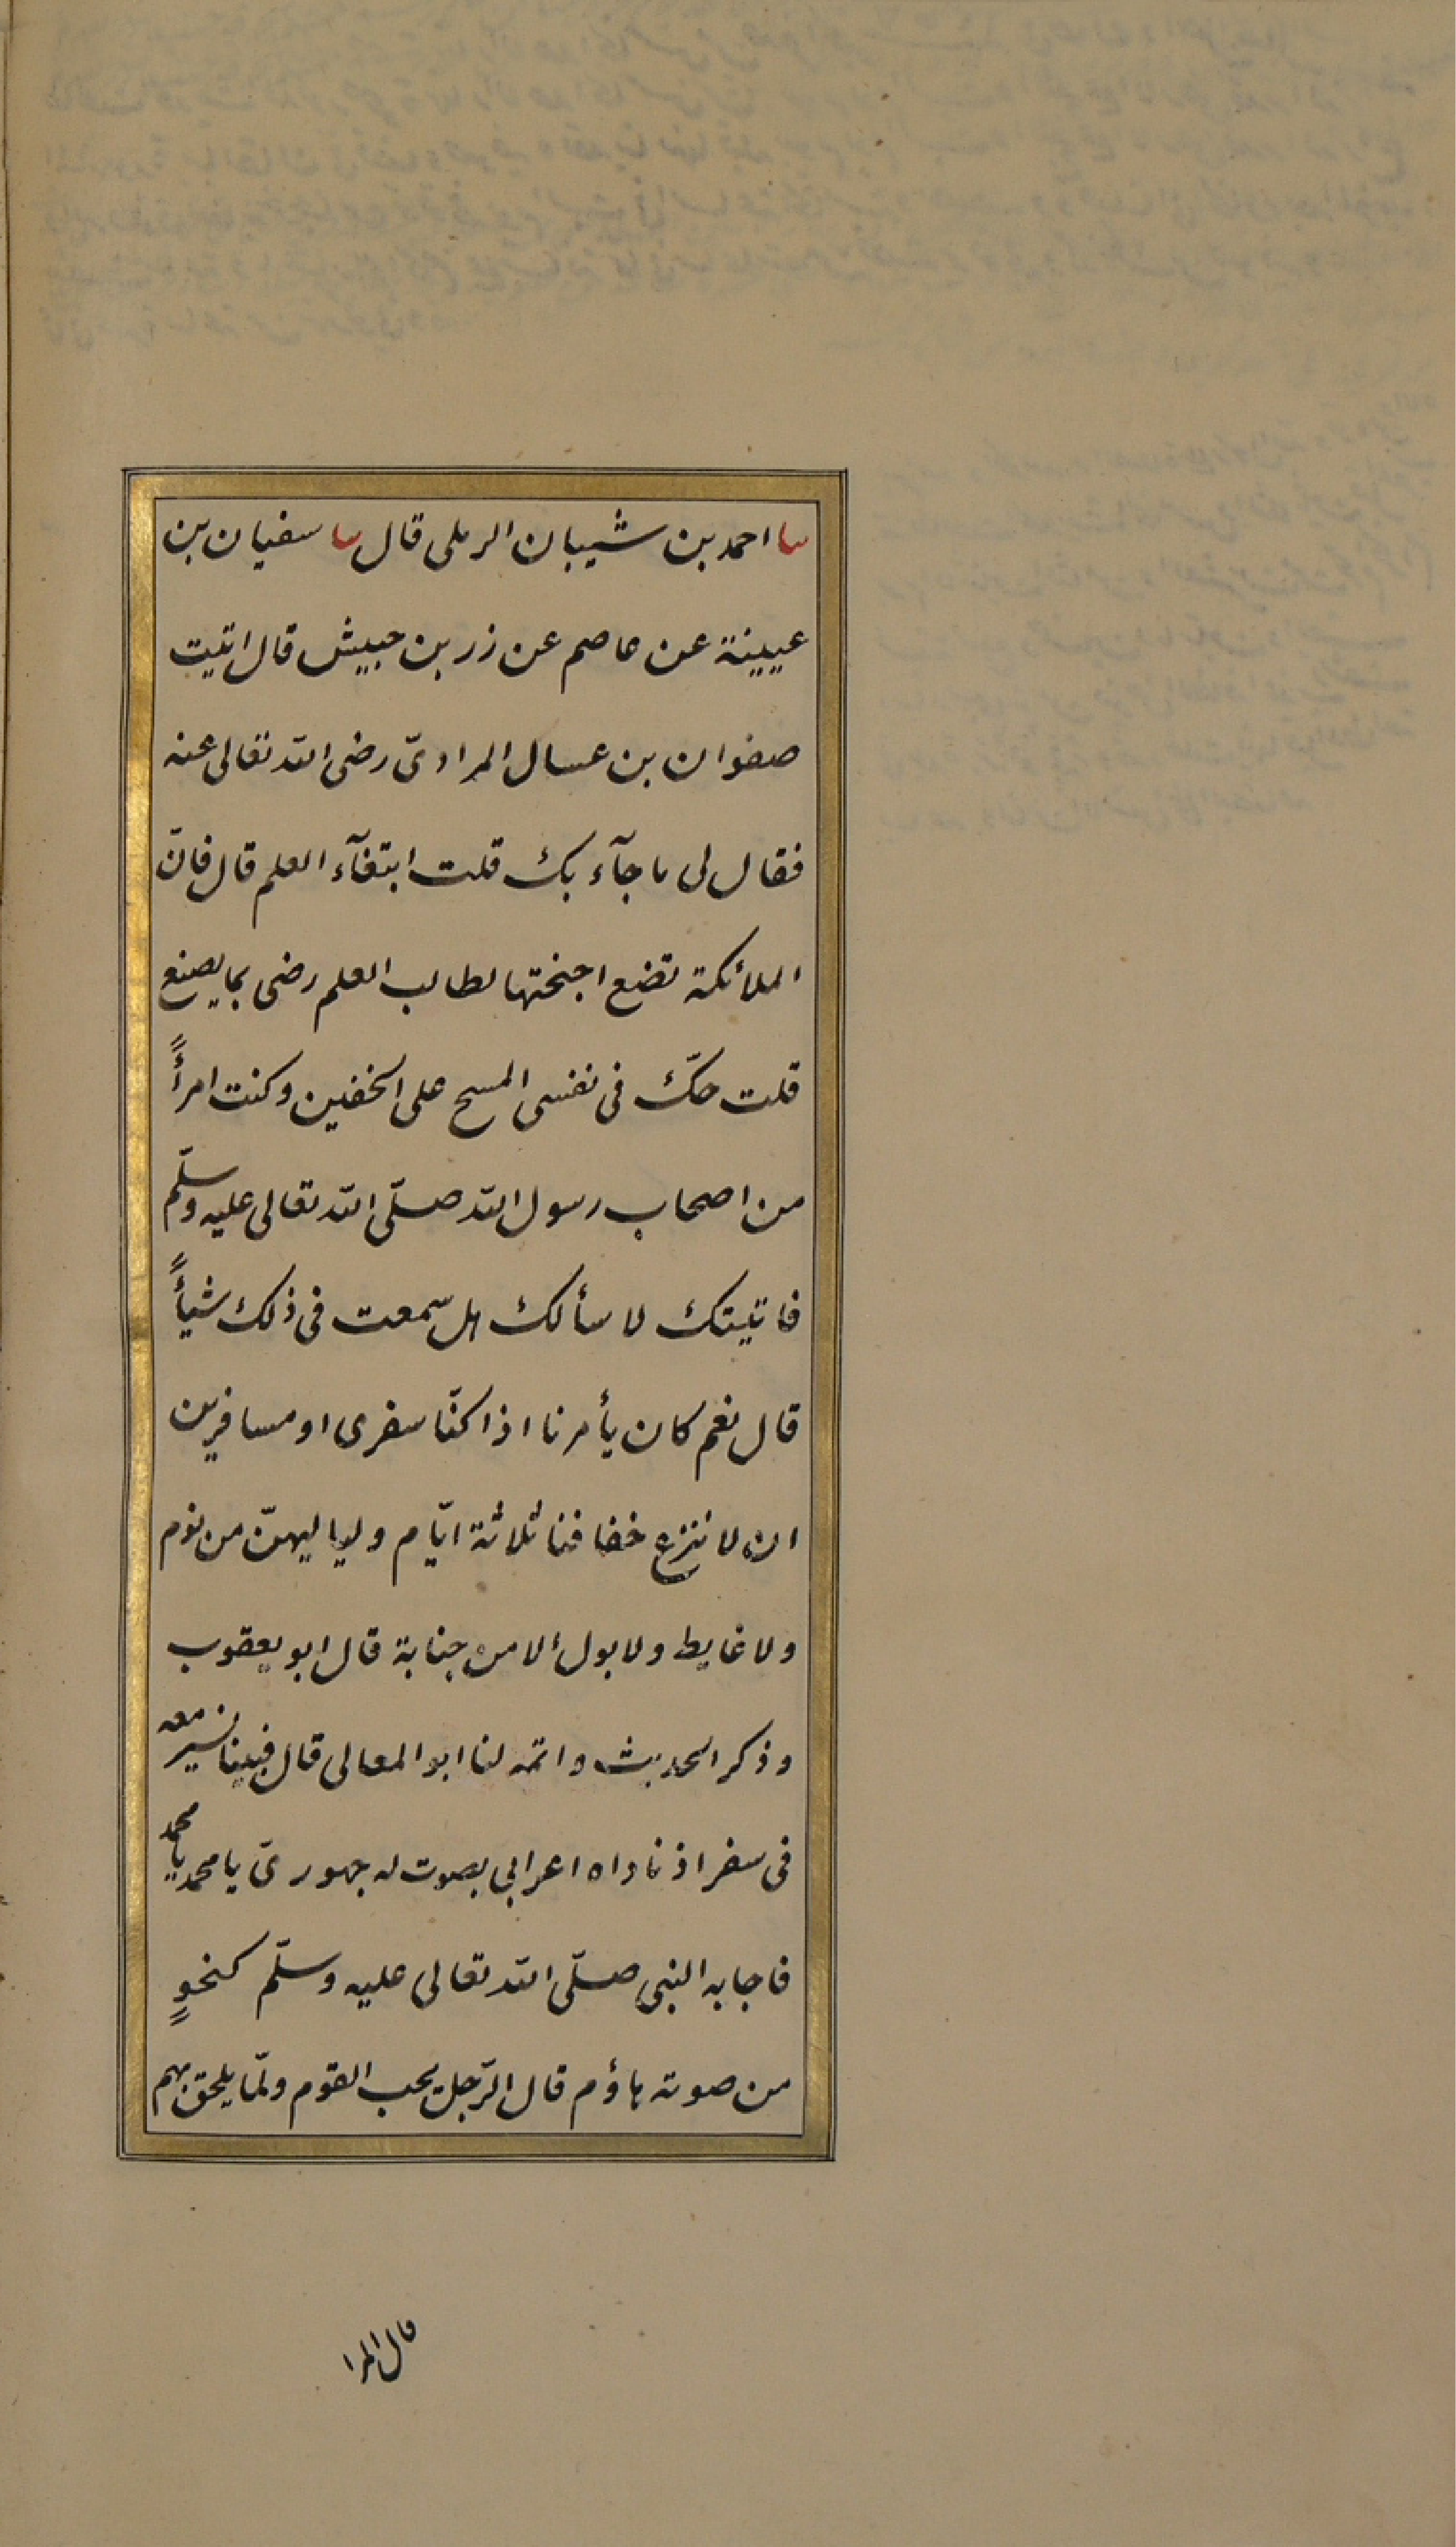 ثنا احمد بن شيبان الرملى قال ثنا سفيان بن
عيينة عن عاصم عن زر بن حبيش قال اتيت
صفوان بن عسال المرادىّ رضى الله تعالى عنه
فقال لى ما جآء بك قلت ابتغآء العلم قال فانّ
الملائكة تضع اجنحتها لطالب العلم رضى بما يصنع
قلت حكّ فى نفسى المسح على الخفين وكنت امرأً
من اصحاب رسول الله صلّى الله تعالى عليه وسلّم
فاتيتك لاسألك هل سمعت فى ذلك شيأً
قال نعم كان يأمرنا اذا كنّا سفرى او مسافرين
ان لا ننزع خفافنا ثلاثة ايّام ولياليهنّ من نوم
ولا غايط ولا بول الا من جنابة قال ابو يعقوب
وذكر الحديث واتمه لنا ابو المعالى قال فبينا نسير معه
فى سفر اذ ناداه اعرابى بصوت له جهورىّ يا محمد يا محمد
فاجابه النبى صلّى الله تعالى عليه وسلّم كنحوٍ
من صوته هاؤم قال الرّجل يحب القوم ولمّا يلحق بهم
قال المرا